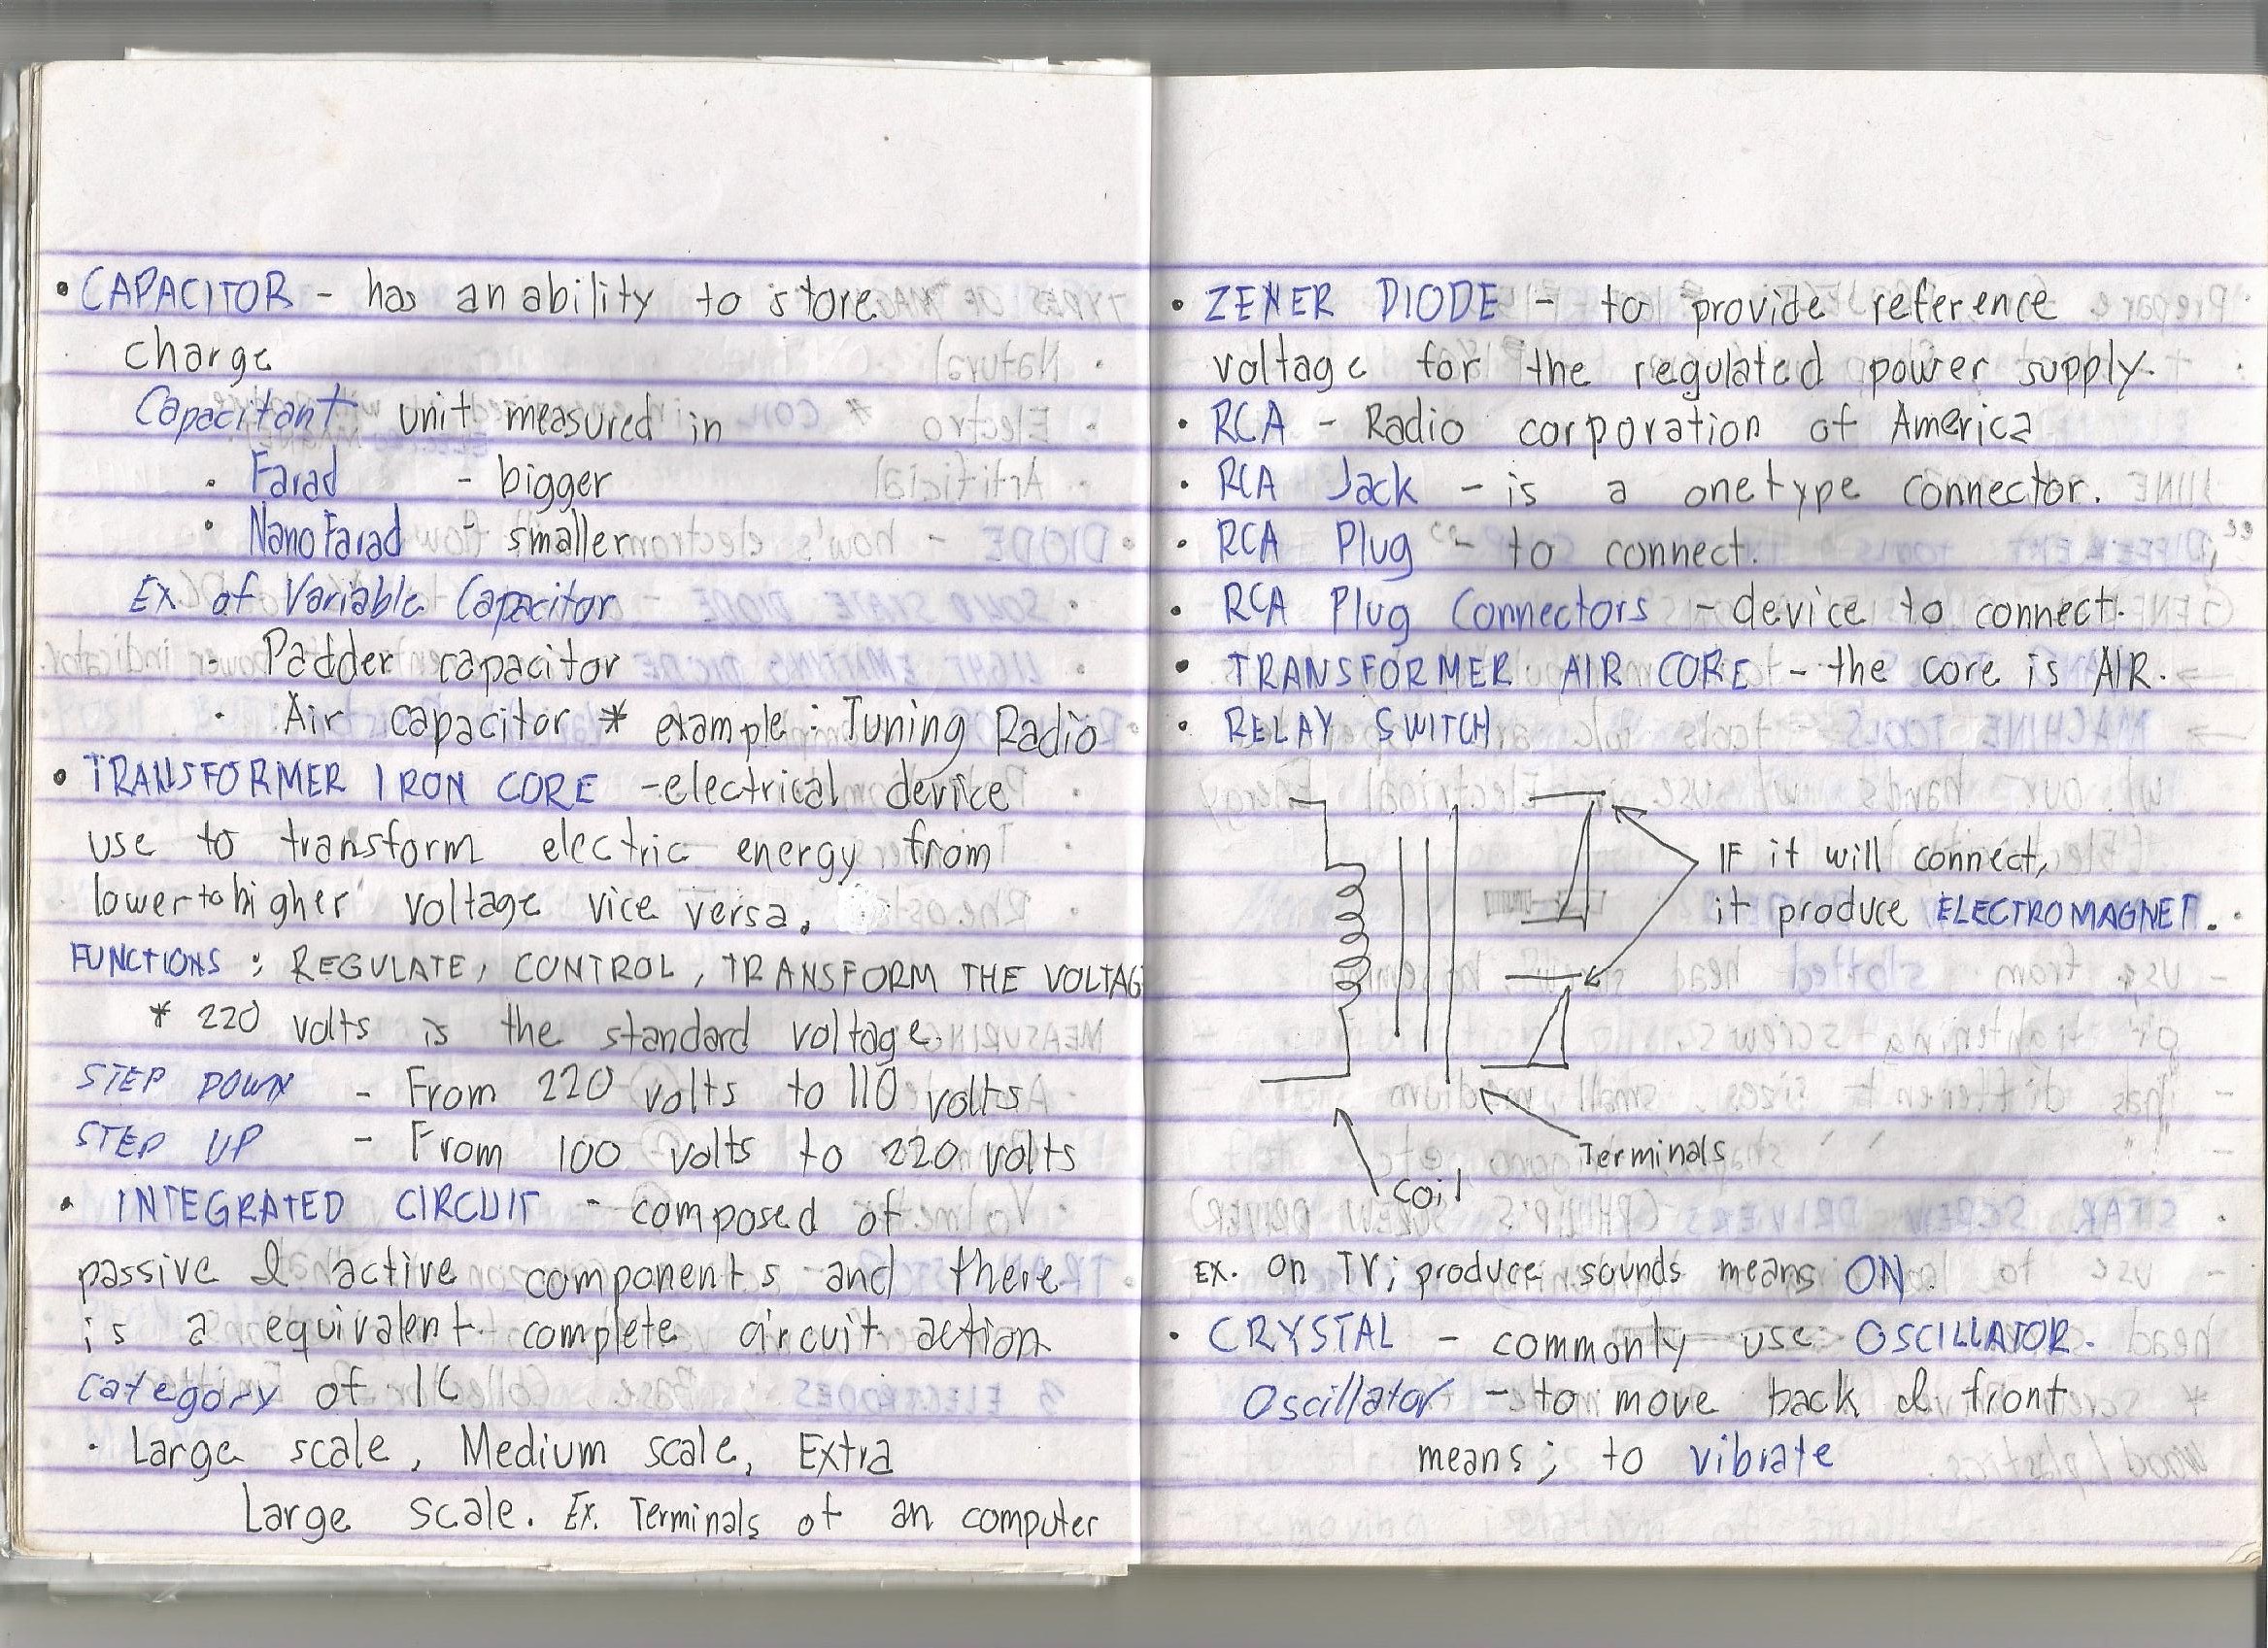 • CAPACITOR - has an ability to store
charge
Capacitant unit measured in
• Farad - bigger
• NanoFarad - smaller
Ex of Variable Capacitor
• Padder capacitor
• Air capacitor * example : Tuning Radio
• TRANSFORMER IRON CORE - electrical device
use to transform electric energy from
lower to higher voltage vice versa.
FUNCTIONS : REGULATE, CONTROL, TRANSFORM THE VOLTAG
* 220 volts is the standard voltage.
STEP DOWN - From 220 volts to 110 volts
STEP UP - From 100 volts to 220 volts
• INTEGRATED CIRCUIT - composed of
passive & active components and there
is a equivalent complete circuit action
Category of IC
• Large scale, Medium scale, Extra
Large scale. Ex. Terminals of an computer
• ZENER DIODE - to provide reference
voltage for the regulated power supply.
• RCA - Radio corporation of America
• RCA Jack - is a one type connector.
• RCA Plug - to connect.
• RCA Plug Connectors - device to connect.
• TRANSFORMER AIR CORE - the core is AIR.
• RELAY SWITCH
IF it will connect,
it produce ELECTROMAGNET.
Terminals
Coil
EX. on TV; produce sounds means ON
• CRYSTAL - commonly use OSCILLATOR.
Oscillator - to move back & front
means; to vibrate